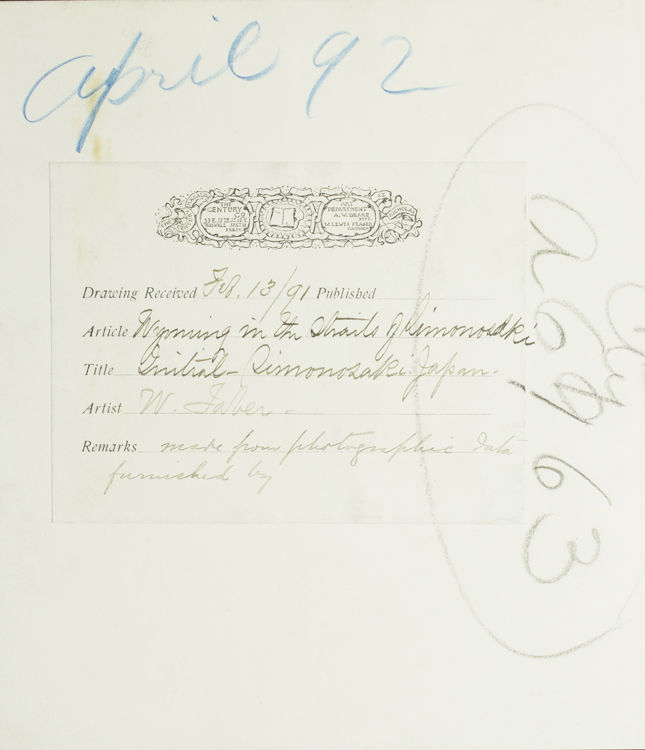 April 92
THE CENTURY CO
33 E. 17TH ST. N.Y.
ROSWELL SMITH
PRES'T
ART DEPARTMENT
A.W. DRAKE
SUPT.
W. LEWIS FRASER
MANAGER
Drawing Received Feb. 13/91 Published
Article Wyoming in the Straits of Simonosaki
Title Initial - Simonosaki Japan.
Artist W. Taber -
Remarks made from photographic data
furnished by
63